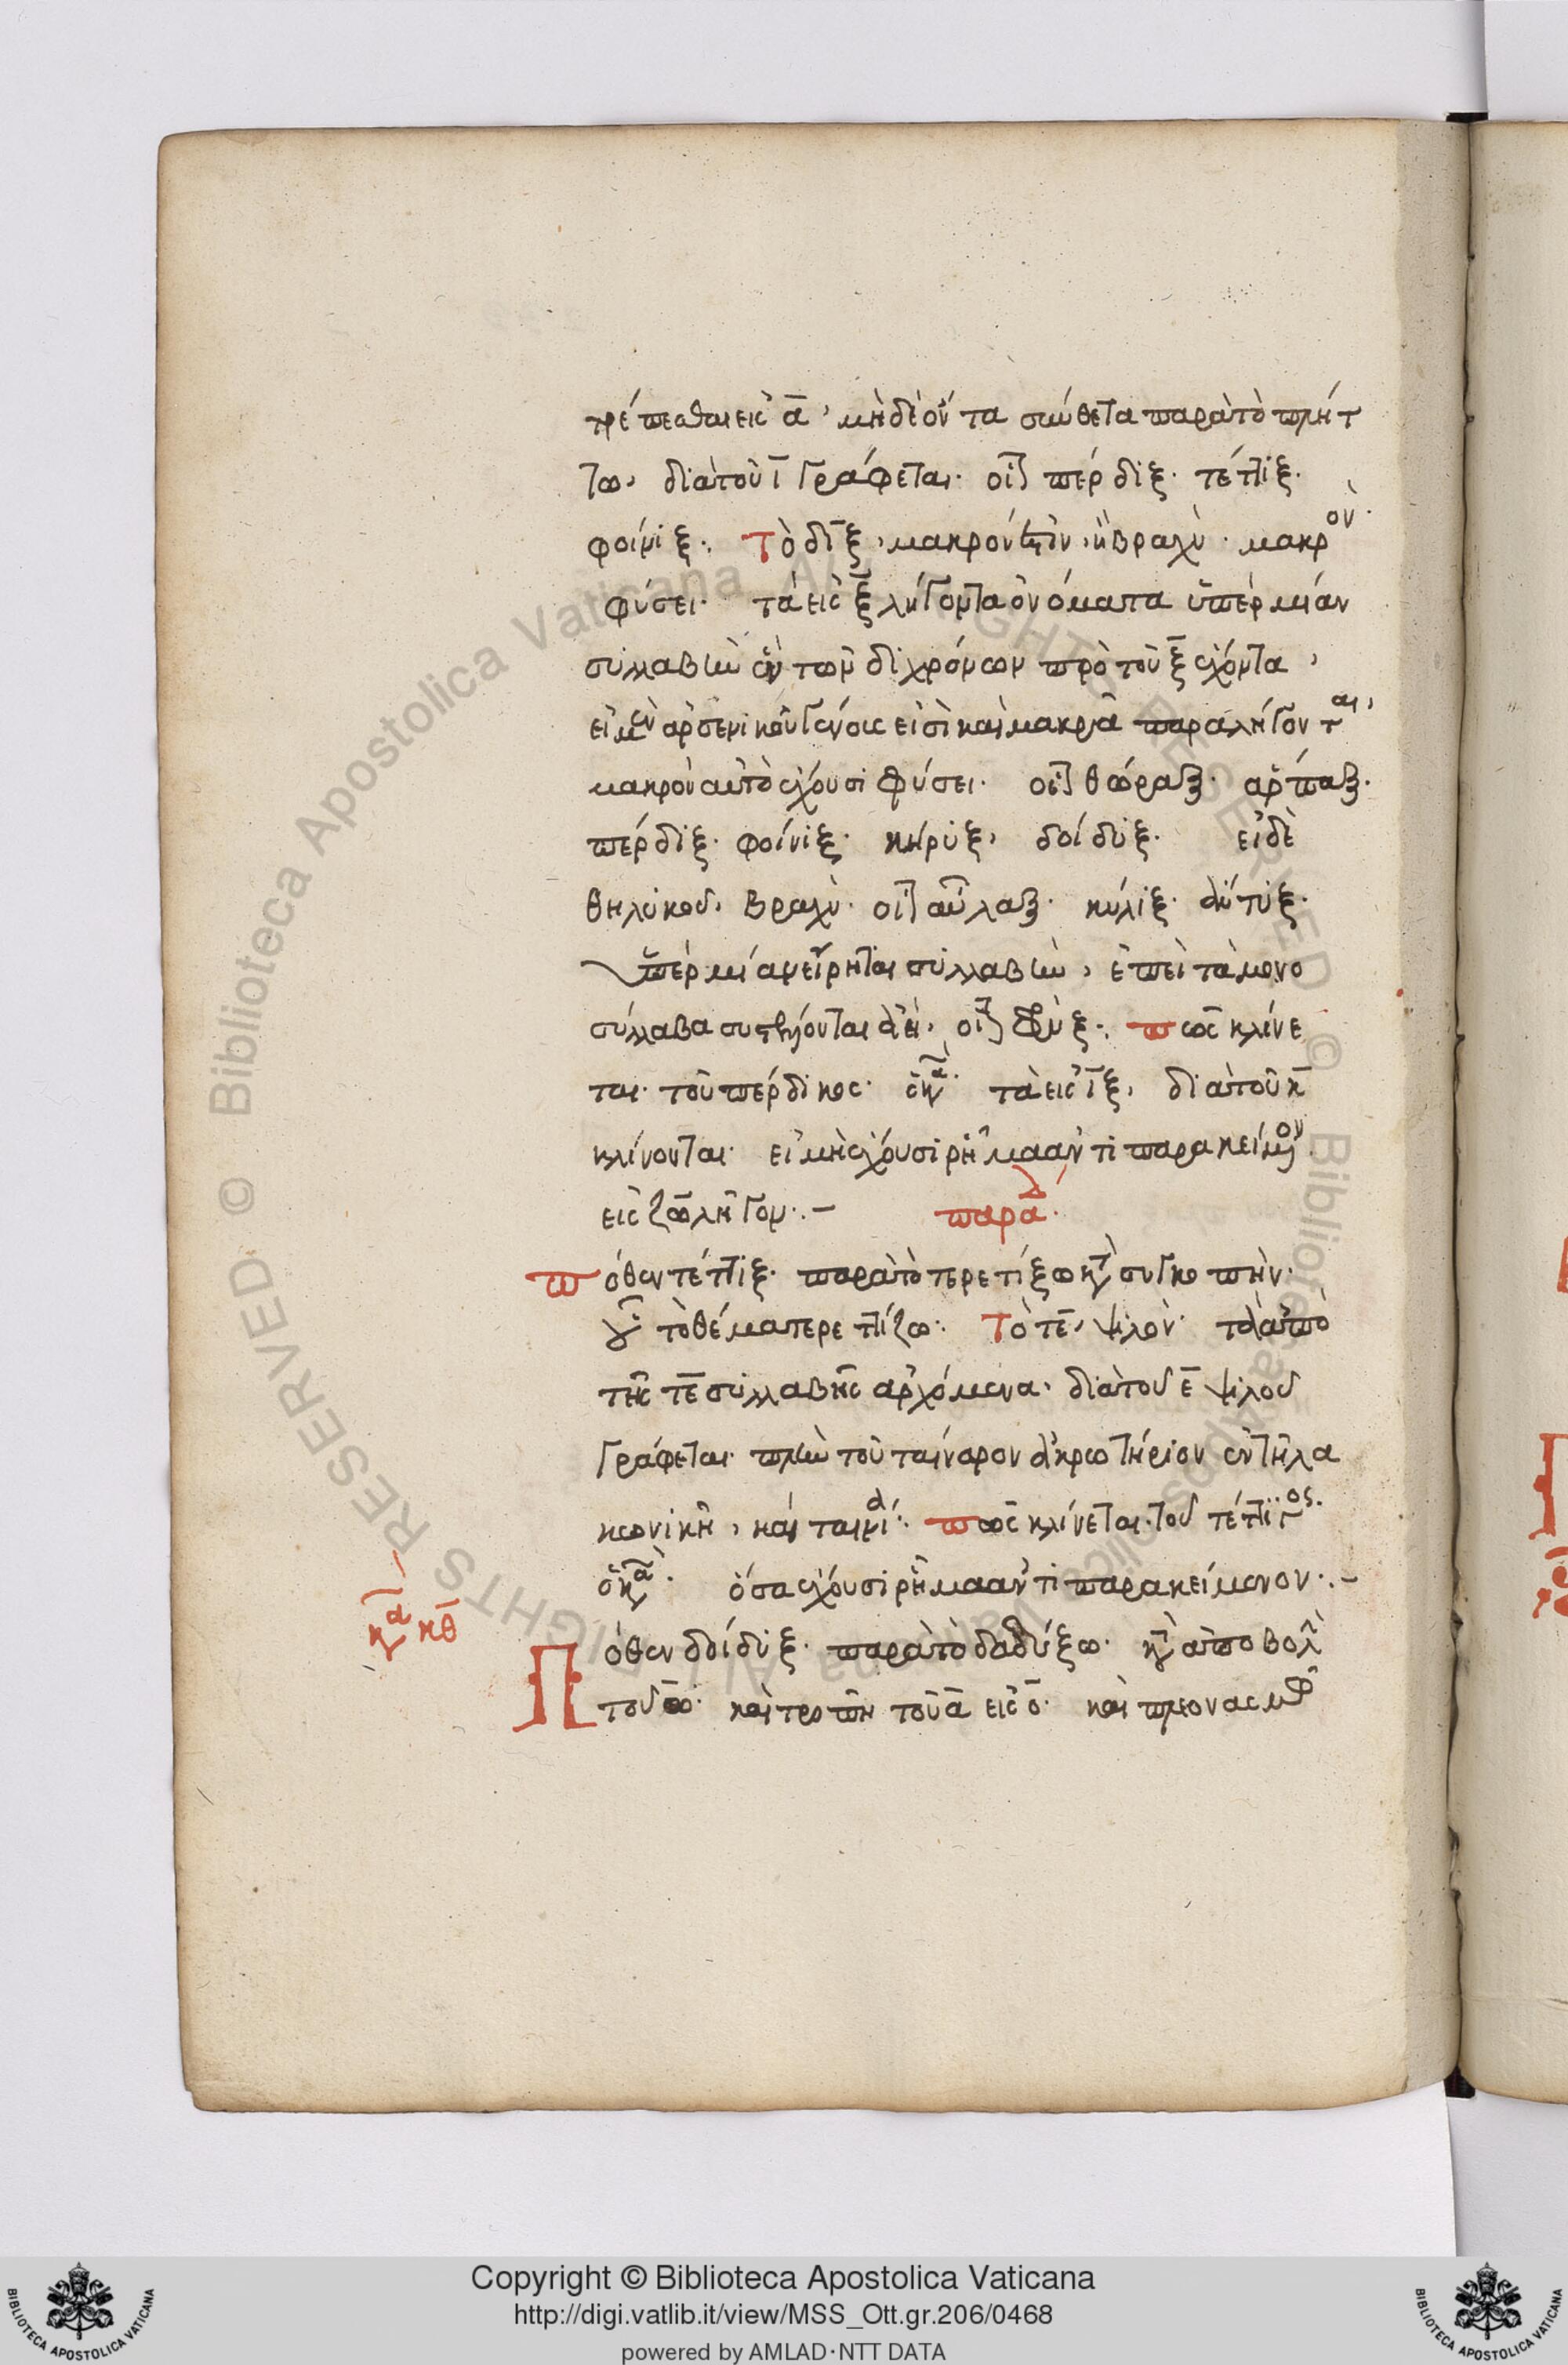 τρέπεσθαι εἰς ᾱ, μὴ δὲ ὄντα σύνθετα παρὰ τὸ πλήτ
τω, διὰ τοῦ ῑ γράφεται· οἷ πέρδιξ· τέττιξ·
φοίνιξ· Τὸ διξ, μακρόν ἐστιν, ἢ βραχύ· μακρὸν·
φύσει· τὰ εἰς ξ̄ λήγοντα ὀνόματα ὑπὲρ μίαν
συλλαβὴν ἓν τῶν διχρόνων πρὸ τοῦ ξ̄ ἔχοντα,
εἰ μὲν ἀρσενικοῦ γένους εἰσὶ καὶ μακρᾷ παραλήγονται,
μακρὸν αὐτὸ ἔχουσι φύσει· οἷ θώραξ· ἅρπαξ·
πέρδιξ· φοίνιξ· κήρυξ, δοίδυξ· εἰ δὲ
θηλυκοῦ, βραχύ· οἷ αὖλαξ· κύλιξ· ἄντυξ·
ὑπὲρ μίαν εἴρηται συλλαβὴν, ἐπεὶ τὰ μονο
σύλλαβα συστέλλονται ἀεὶ, οἷ Φρὺξ· πῶς κλίνε
ται· τοῦ πέρδικος· ὁ κανὼν· τὰ εἰς ῑξ, διὰ τοῦ κ̄
κλίνονται· εἰ μὴ ἔχουσι ῥῆμα ἀντιπαρακείμενον
εἰς ζω λῆγον·– παρα
πόθεν τέττιξ· παρὰ τὸ τερετίξω κατὰ συγκοπὴν·
τὸ θέμα τερετίζω· Τὸ τε, ψιλὸν· τὰ ἀπὸ
τῆς τε συλλαβῆς ἀρχόμενα, διὰ τοῦ ε̄ ψιλοῦ
γράφεται· πλὴν τοῦ ταίναρον ἀκρωτήριον ἐν τῇ λα
κωνικῇ, καὶ ταινία· πῶς κλίνεται· τοῦ τέττιγος·
ὁ κανὼν· ὅσα ἔχουσι ῥῆμα ἀντιπαρακείμενον·–
κθ̄
Πόθεν δοίδυξ· παρὰ τὸ δαδύξω· κατὰ ἀποβολὴ
τοῦ ω· καὶ τροπῇ τοῦ ᾱ εἰς ο̄· καὶ πλεονασμῷ
Copyright © Biblioteca Apostolica Vaticana
http://digi.vatlib.it/view/MSS_Ott.gr.206/0468
powered by AMLAD·NTT DATA
BIBLIOTECA APOSTOLICA VATICANA
BIBLIOTECA APOSTOLICA VATICANA